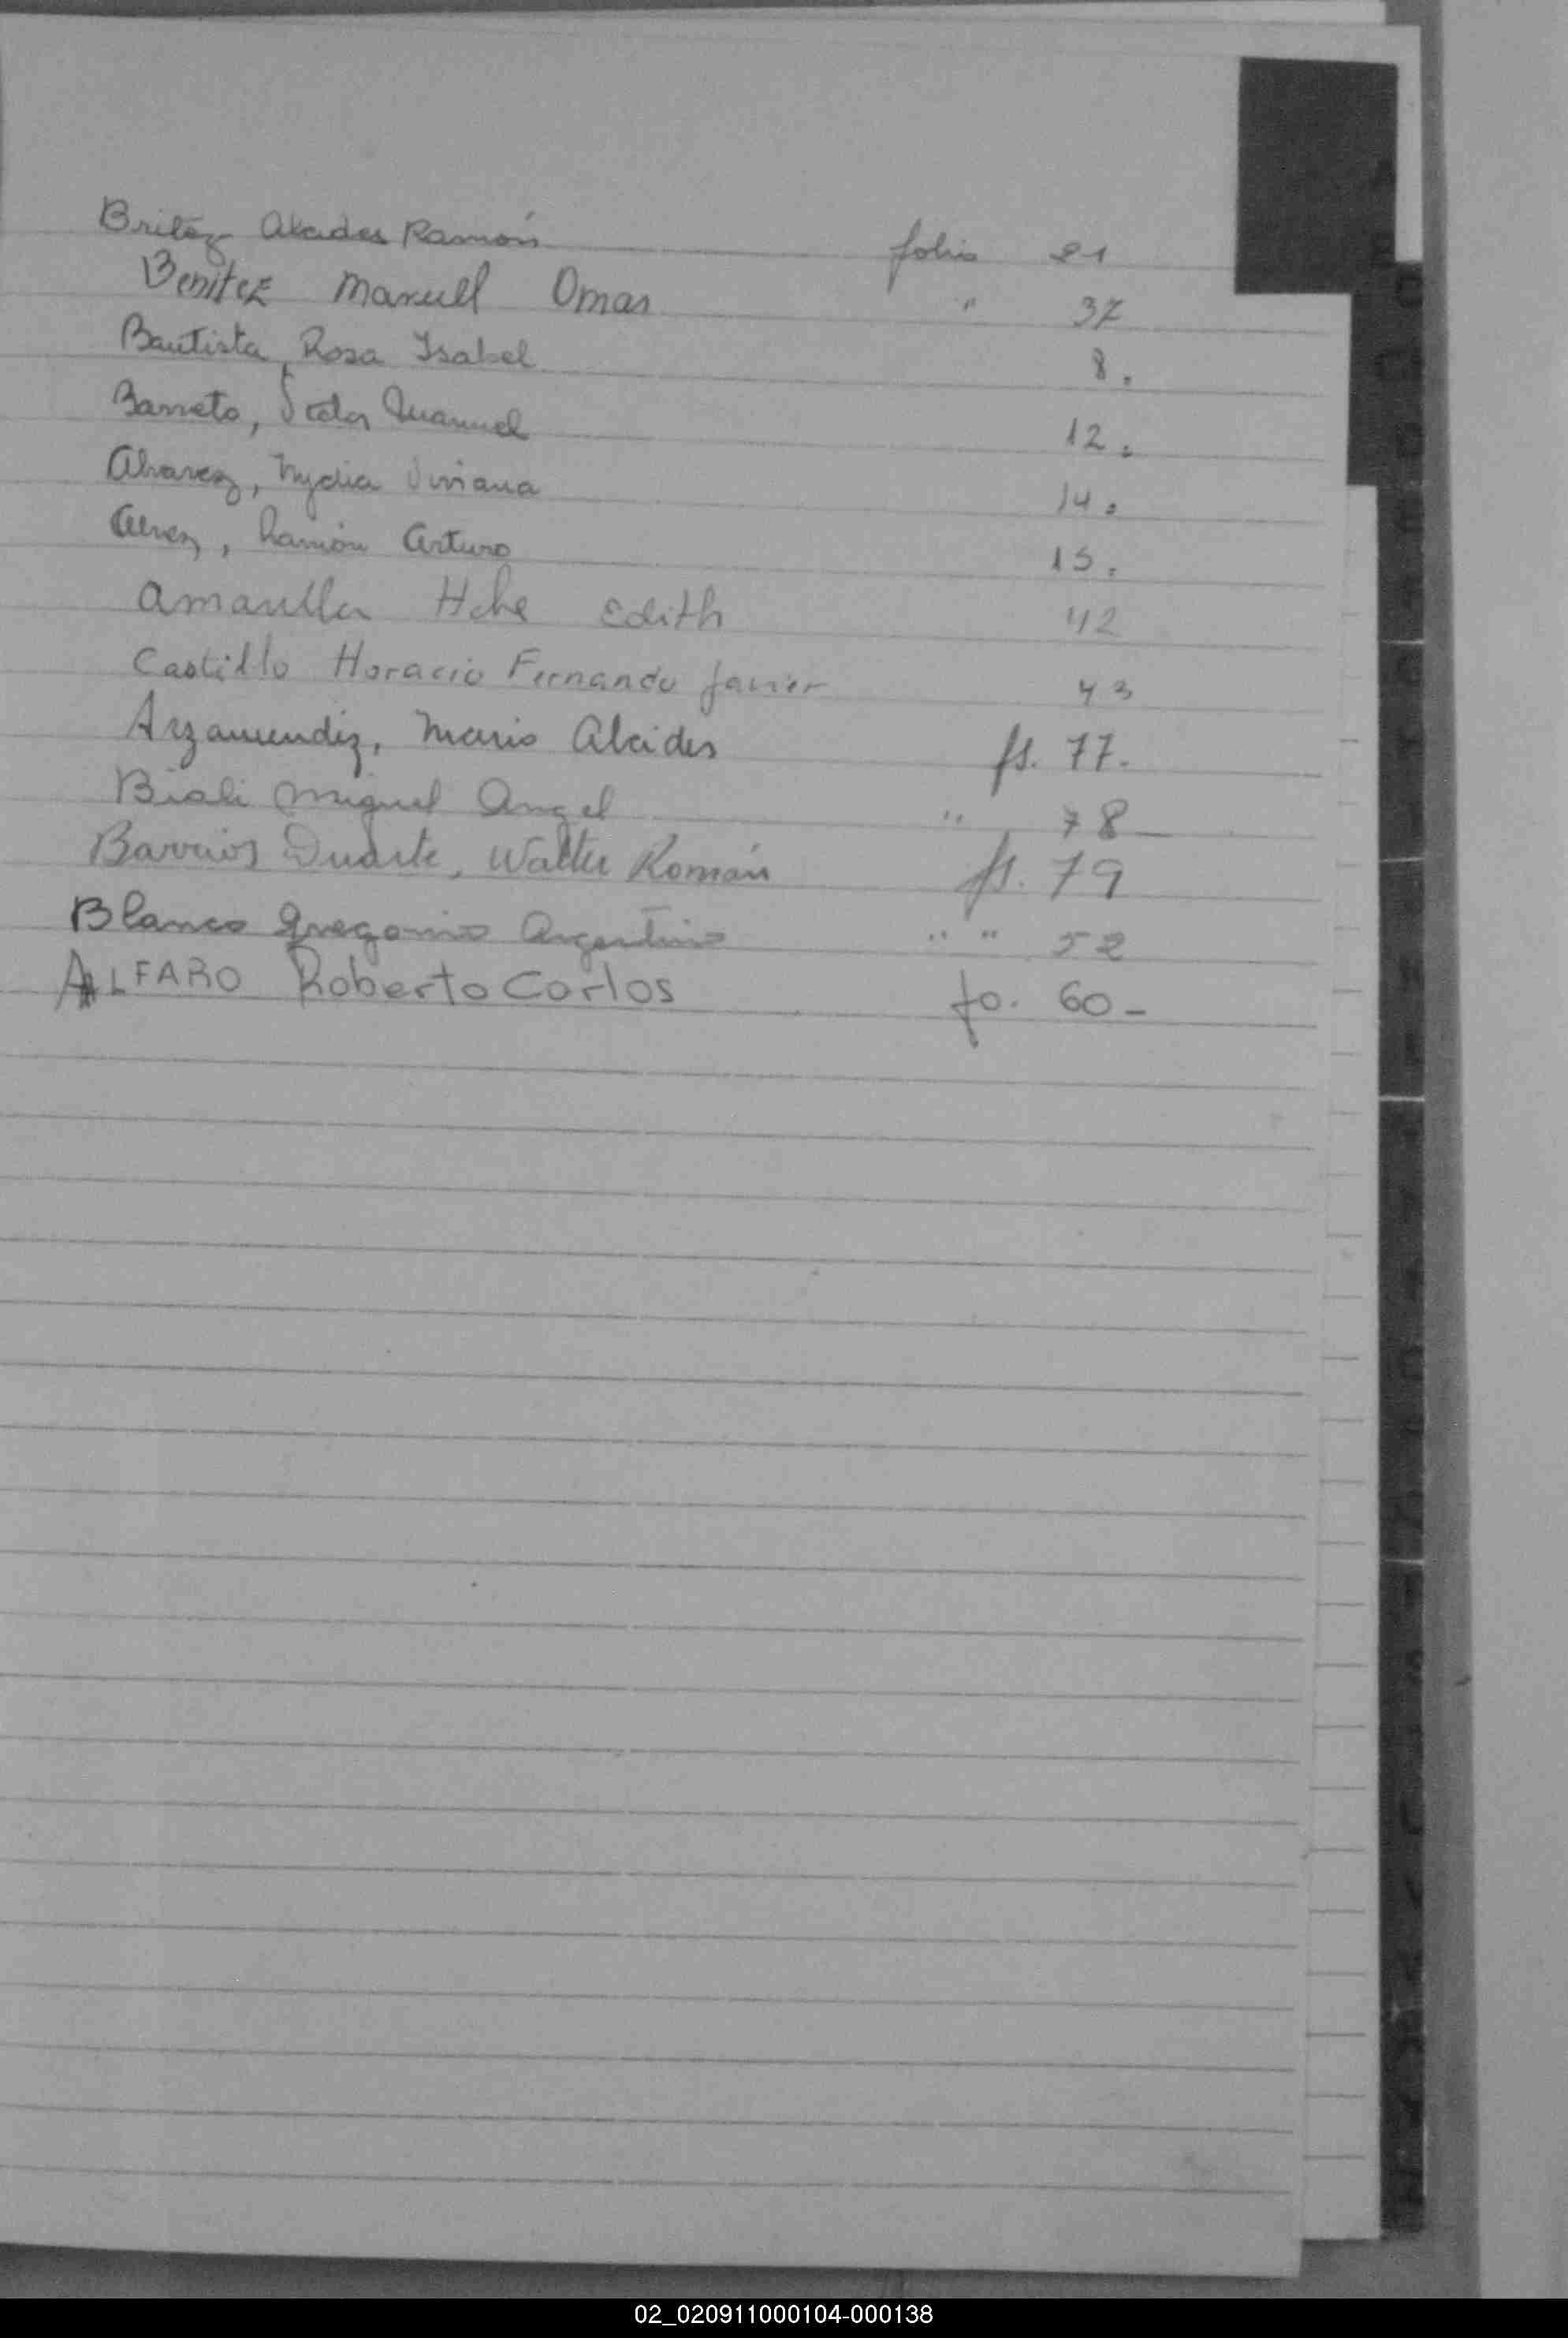 Britez Alcides Ramón folio 21
Benitez Manuel Omar " 37
Bautista, Rosa Isabel 8.
Barreto, Manuel 12.
Alvarez, Nydia Viviana 14.
Ramón Arturo 15.
Amarilla Hebe Edith 42
Castillo Horacio Fernando Javier 43
Arzamendiz, Mario Alcides fs. 77.
Biali Miguel Angel " 78
Barrios Duarte, Walter Román fs. 79
Blanco Gregorio Argentino " " 52
ALFARO Roberto Carlos fo. 60-
02_020911000104-000138